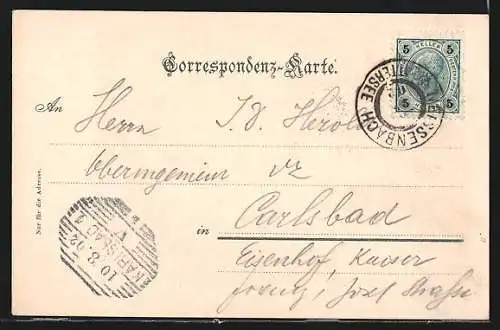 Correspondenz-Karte.
5 HELLER 5
5 5
WEISSENBACH ATTERSEE
An
Herrn J. V. Herold
Oberingenieur
in Carlsbad
Eisenhof, Kaiser
Franz Josef Straße
Nur für die Adresse.
KARLSBAD
10 8 02